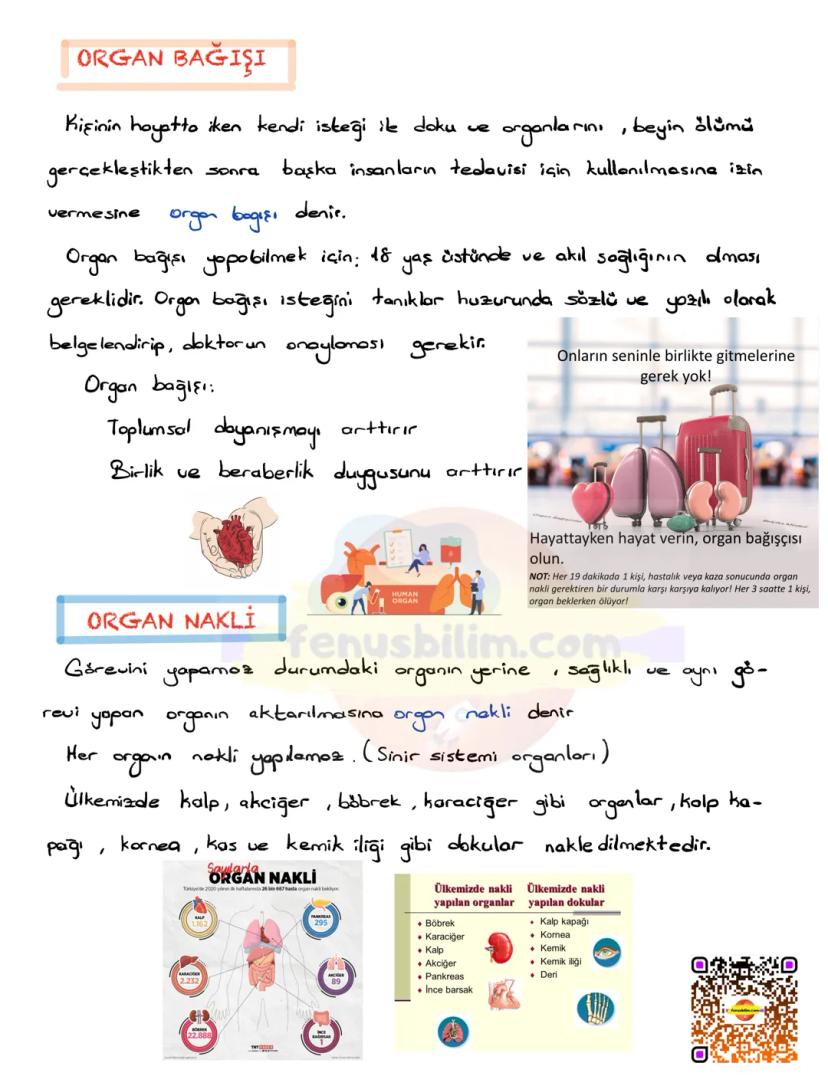 ORGAN BAĞIŞI
Kişinin hayatta iken kendi isteği ile doku ve organlarını , beyin ölümü
gerçekleştikten sonra başka insanların tedavisi için kullanılmasına izin
vermesine organ bağışı denir.
Organ bağışı yapabilmek için; 18 yaş üstünde ve akıl sağlığının olması
gereklidir. Organ bağışı isteğini tanıklar huzurunda sözlü ve yazılı olarak
belgelendirip, doktorun onaylaması gerekir.
Organ bağışı:
Toplumsal dayanışmayı arttırır
Birlik ve beraberlik duygusunu arttırır
Onların seninle birlikte gitmelerine
gerek yok!
Hayattayken hayat verin, organ bağışçısı
olun.
NOT: Her 19 dakikada 1 kişi, hastalık veya kaza sonucunda organ
nakli gerektiren bir durumla karşı karşıya kalıyor! Her 3 saatte 1 kişi,
organ beklerken ölüyor!
HUMAN
ORGAN
fenusbilim.com
ORGAN NAKLİ
Görevini yapamaz durumdaki organın yerine , sağlıklı ve aynı gö-
revi yapan organın aktarılmasına organ nakli denir
Her organın nakli yapılamaz. (Sinir sistemi organları)
Ülkemizde kalp, akciğer , böbrek , karaciğer gibi organlar , kalp ka-
pağı , kornea , kas ve kemik iliği gibi dokular nakledilmektedir.
Sayılarla
ORGAN NAKLİ
Türkiye'de 2020 yılının ilk haftalarında 26 bin 667 hasta organ nakli bekliyor.
KALP
1.162
PANKREAS
295
KARACİĞER
2.232
AKCİĞER
89
BÖBREK
22.888
İNCE
BAĞIRSAK
1
Ülkemizde nakli
yapılan organlar
Böbrek
Karaciğer
Kalp
Akciğer
Pankreas
İnce barsak
Ülkemizde nakli
yapılan dokular
Kalp kapağı
Kornea
Kemik
Kemik iliği
Deri
fenusbilim.com